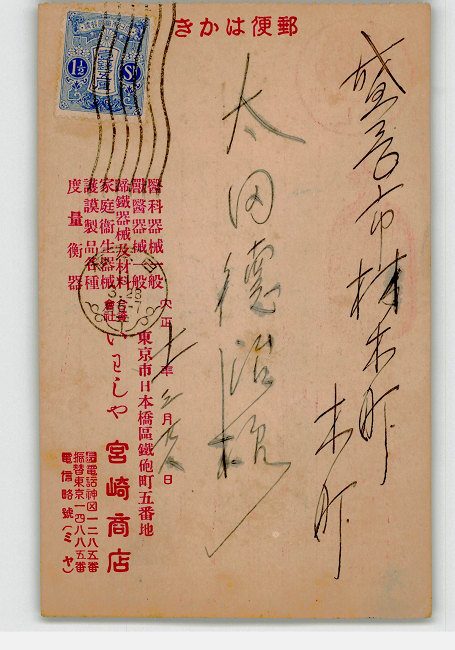 郵便はかき
1½ Sn
材木町
木町
太田德治様
醫科器械一般
獸醫器械一般
蹄鐵器械及材料
家庭衞生器械
護謨製品各種
度量衡器
大正十二年三月 日
東京市日本橋區鐵砲町五番地
合資會社
いわしや 宮崎商店
電話神田一二八五番
振替東京一四八八五番
電信略號(ミヤ)